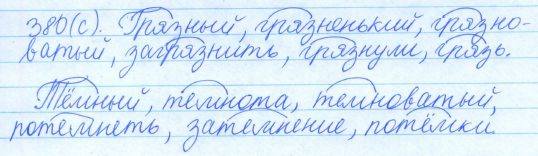 380(с). Грязный, грязненький, грязно-
ватый, загрязнить, грязнули, грязь.
Тёмный, темнота, темноватый,
потемнеть, затемнение, потёмки.